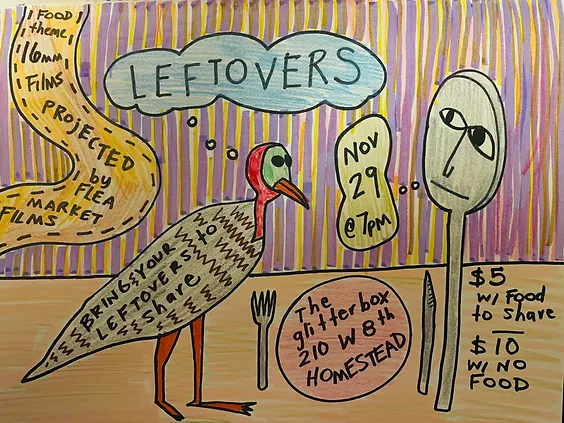 FOOD
theme
16mm
FILMS
PROJECTED
by FLEA
MARKET
FILMS
LEFTOVERS
NOV
29
@ 7pm
BRING YOUR
LEFTOVERS to
share
The
glitterbox
210 W 8th
HOMESTEAD
$5
w/ Food
to share
$10
w/ NO
FOOD